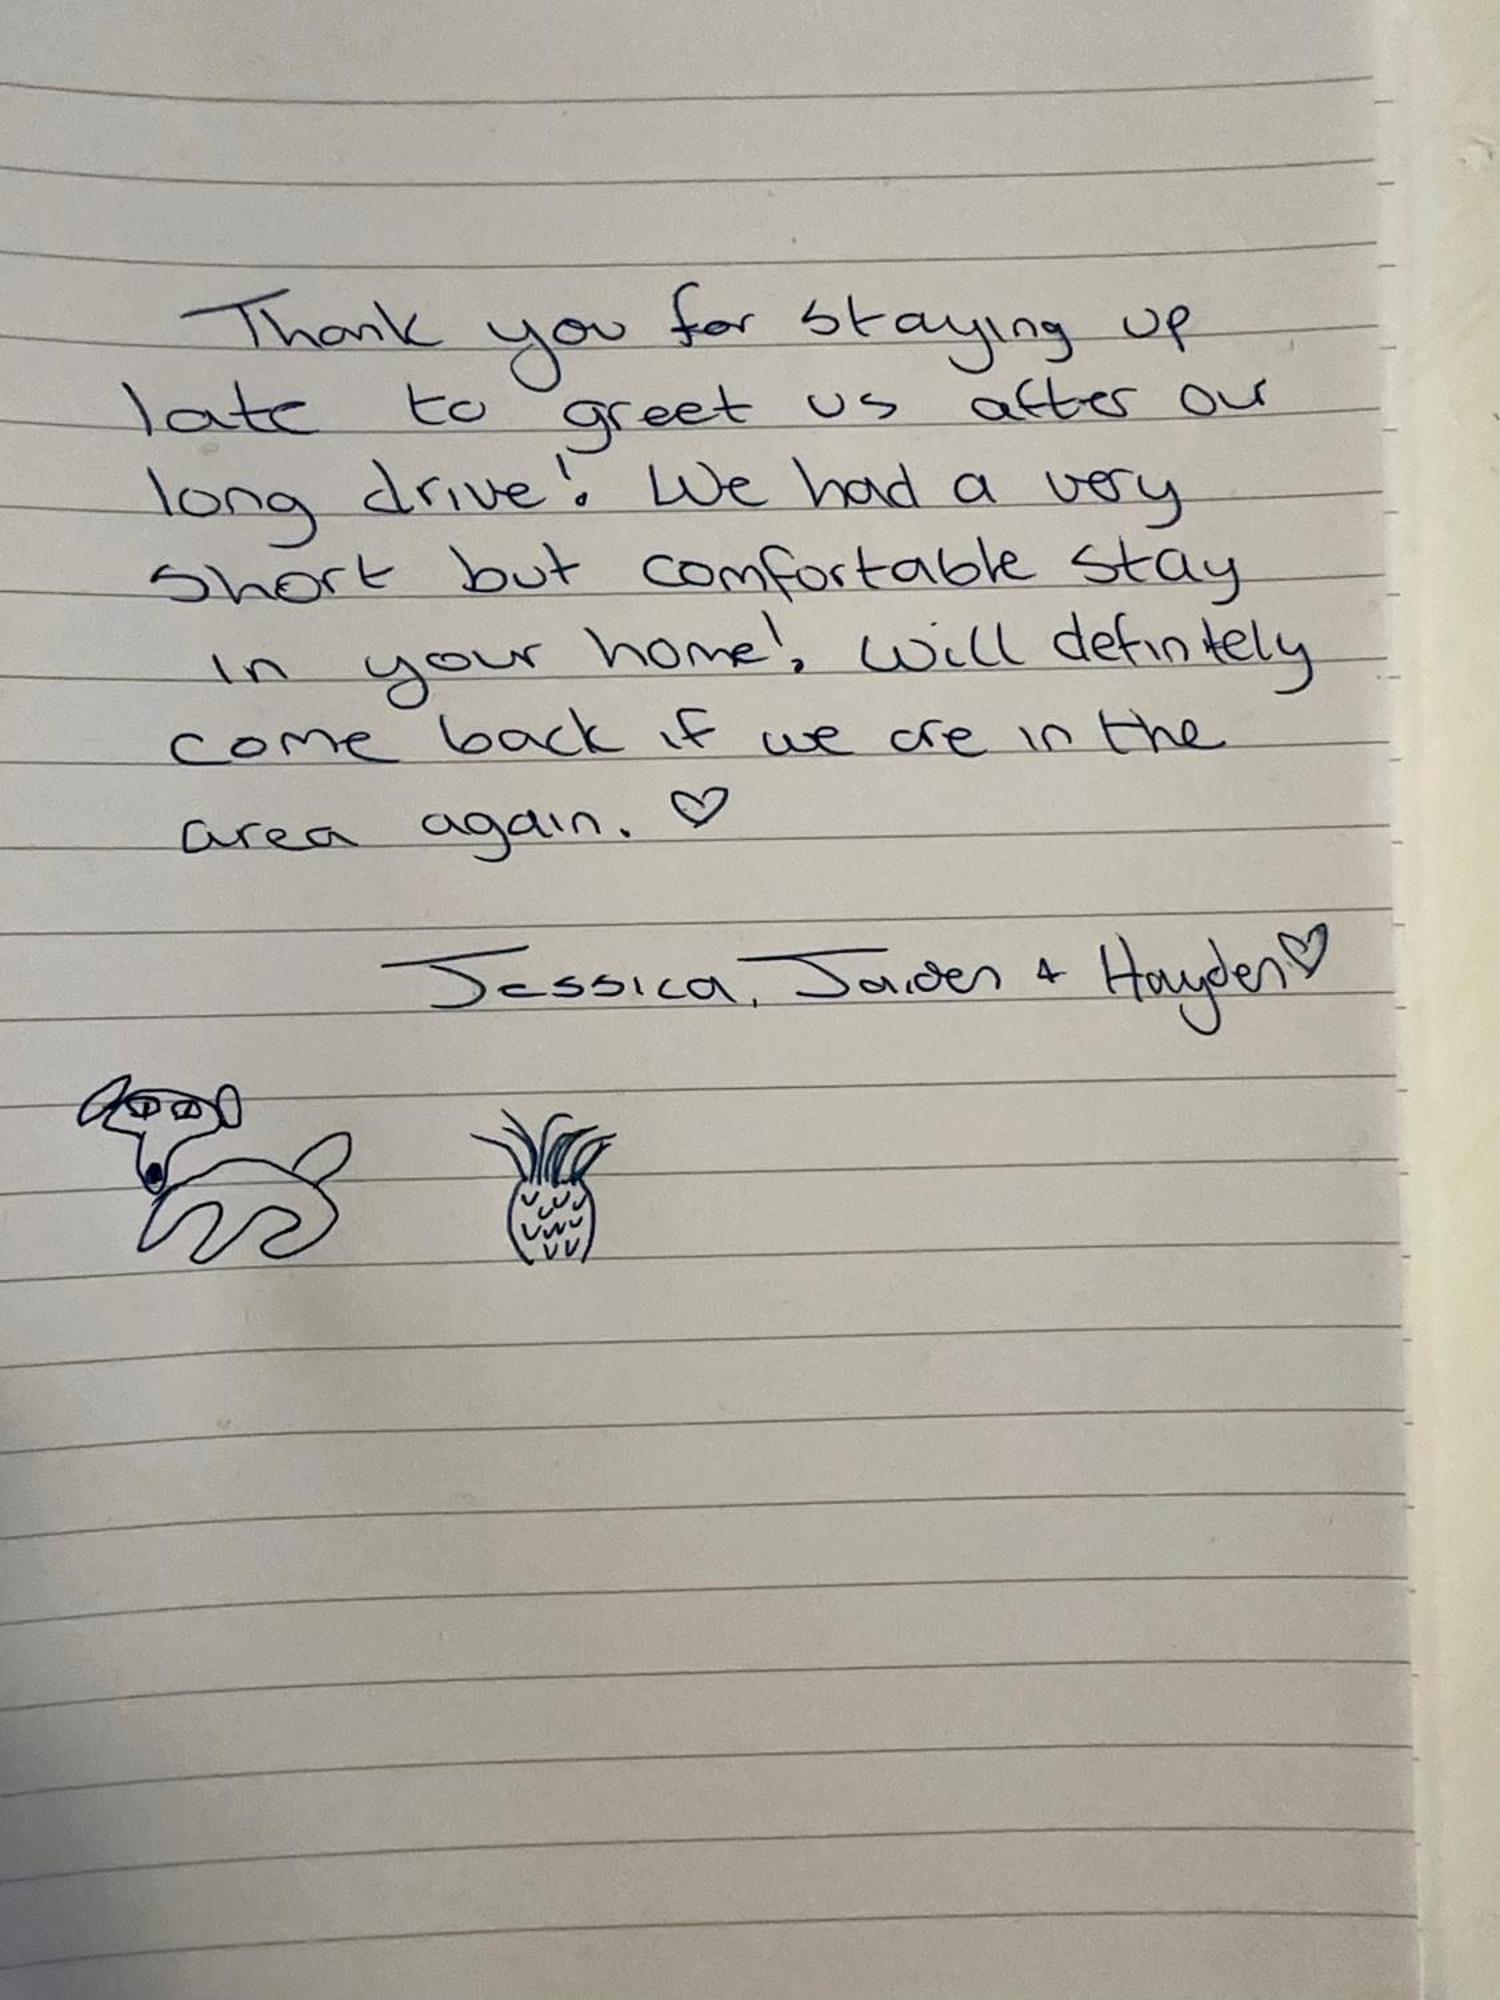 Thank you for staying up
late to greet us after our
long drive! We had a very
short but comfortable stay
in your home! Will defintely
come back if we are in the
area again. ♡
Jessica, Jaiden + Hayden ♡